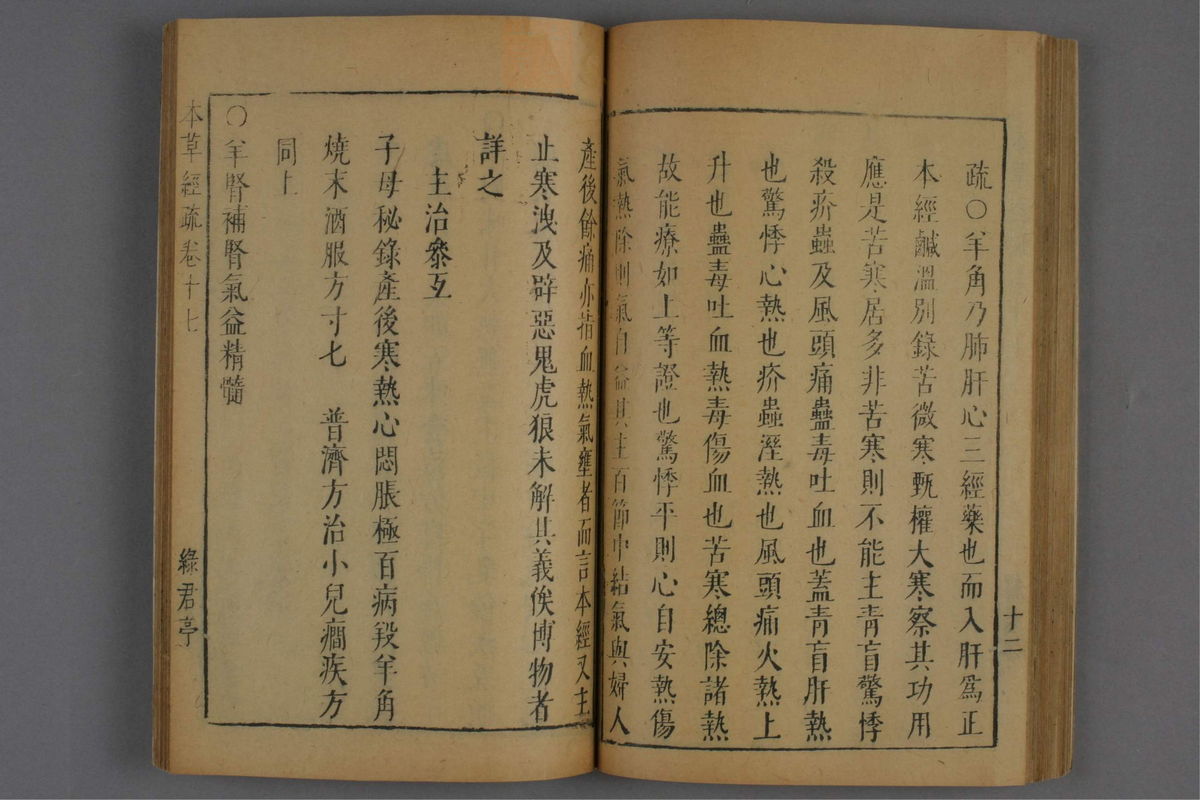 十二
疏〇羊角乃肺肝心三經藥也而入肝爲正
本經鹹溫別錄苦微寒甄權大寒察其功用
應是苦寒居多非苦寒則不能主靑盲驚悸
殺疥蟲及風頭痛蠱毒吐血也蓋靑盲肝熱
也驚悸心熱也疥蟲溼熱也風頭痛火熱上
升也蠱毒吐血熱毒傷血也苦寒總除諸熱
故能療如上等證也驚悸平則心自安熱傷
氣熱除則氣自益其主百節中結氣與婦人
產後餘痛亦指血熱氣壅者而言本經又主
止寒洩及辟惡鬼虎狼未解其義俟博物者
詳之
主治參互
子母秘錄產後寒熱心悶脹極百病殺羊角
燒末酒服方寸匕 普濟方治小兒癇疾方
同上
〇羊腎補腎氣益精髓
本草經疏卷十七
綠君亭